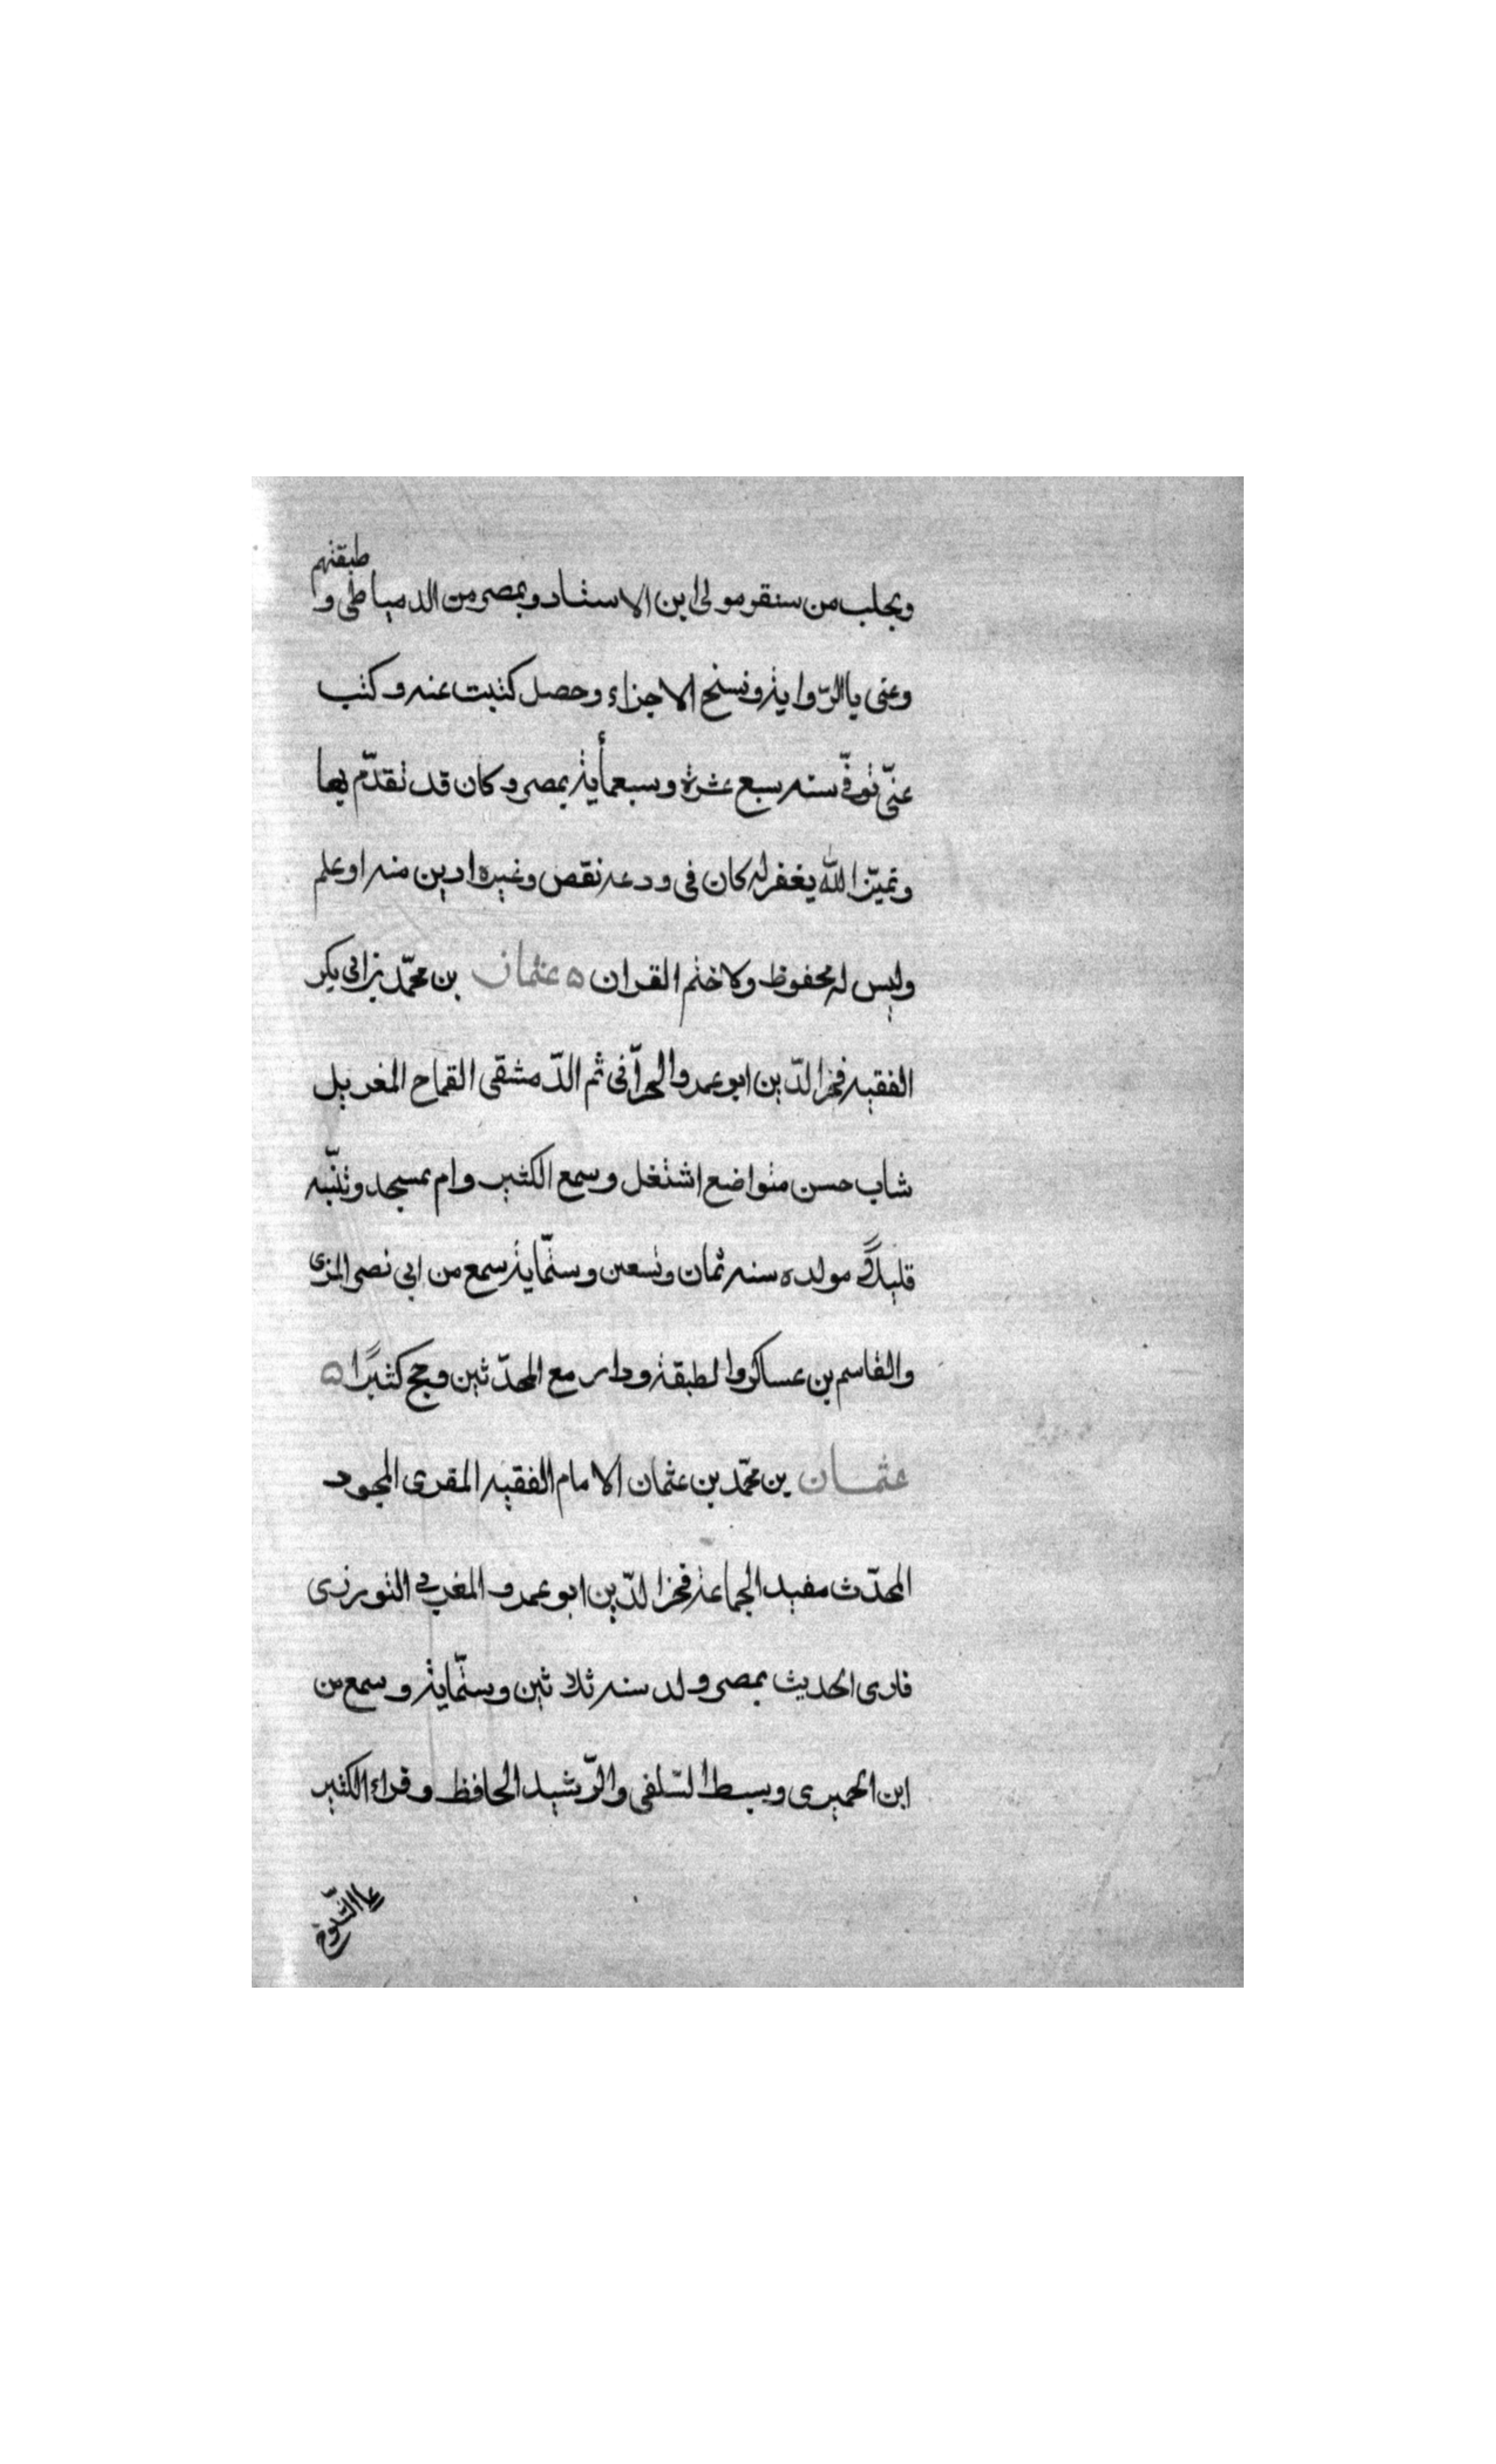 وبحلب من سنقر مولى ابن الاستاد وبمصر من الدمياطى و طبقتهم
وعنى باالرّواية ونسخ الاجزاء وحصل كتبت عنه وكتب
عنّى توفّى سنه سبع عشرة وسبعمأية بمصر وكان قد تقدّم بها
وتميّز الله يغفر له كان فى ودعه نقص وغيره ادين منه اوعلم
وليس له محفوظ ولا ختم القران ه عثمان بن محمّد بن ابى بكر
الفقيه فخر الدّين ابو عمرو الحرّانى ثم الدّمشقى القماح المغربل
شاب حسن متواضع اشتغل وسمع الكثير وام بمسجد وتنبّه
قليلاً فى مولده سنه ثمان وتسعين وستّماية سمع من ابى نصر المزى
والقاسم بن عساكر والطبقة ودار مع المحدّثين وحج كثيرًا ه
عثمان بن محمّد بن عثمان الامام الفقيه المقرى المجود
المحدّث مفيد الجماعة فخر الدّين ابو عمرو المغربى التورزى
قارى الحديث بمصر ولد سنه ثلاثين وستّماية وسمع من
ابن الحميرى وسبط السّلفى والرّشيد الحافظ وقراء الكثير